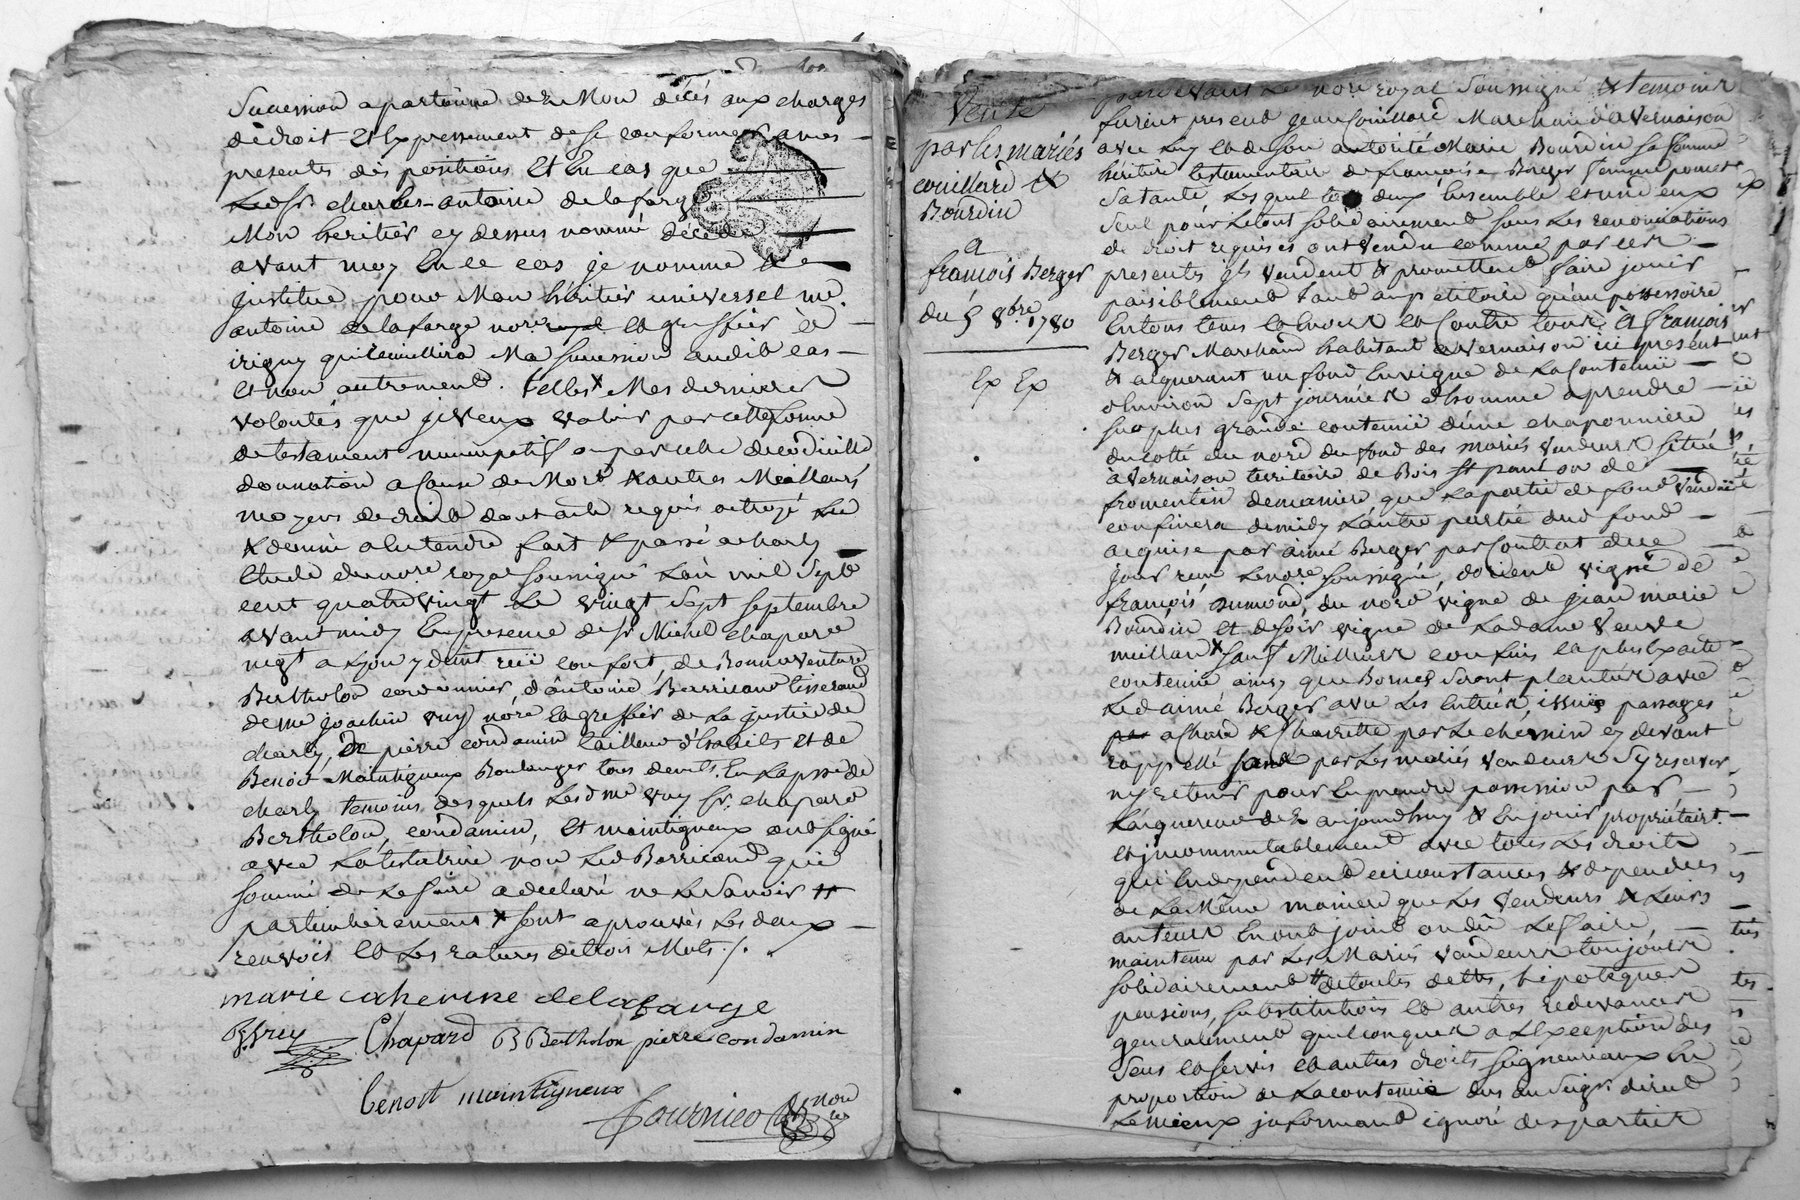 Succession apartenire dez Mon décés aux charges
de droit et Expressement de se conformer a mes
presentes dispositions Et En cas que
Led Sr charles antoine delafarge
Mon heritier cy dessus nommé décéda
avant moy En ce cas je nomme &
jnstitue pour Mon héritier universel me.
antoine delafarge nore royal et greffier de
irigny qui recueillira Ma succession audit cas
et non autrement. telles x Mes dernieres
volontés que je veux valoir par cette forme
de testament nuncupatif ou par celle de codicille
donnation a Cause de Mort & autres Meilleurs
moyens de droit dont acte requis octroyé lu
& donné a la tendre fait & passé a charly
Etude du nore. royal soussigné L'an mil sept
cent quatre vingt Le vingt sept septembre
avant midy En presence de Sr Michel chapard
negt a Lyon y demt ruë confort, de Bonnaventure
Bertholon cordonnier, d'antoine Barricand tisserand
de me joachin vuy nore et greffier de la justice de
charly, de pierre condamin tailleur d'habits et de
Benoit Maintigneux Boulanger tous demts. En La psse de
charly temoins desquels Lesd me vuy sr. chapard
Bertholon, condamin, Et maintigneux ont signé
avec La testatrice non Led Barricand qui
sommé de Le faire a declaré ne Le Savoir #
particulierement x sont aprouvés Les deux
renvois et Les ratures de trois Mots ./.
marie catherine delafarge
Chapard B Bertholon pierre condamin
benoit maintigneux
Vente
par les mariés
couillard &
Bourdin
a
françois Berger
du 5 8bre 1780
Ex Ex
pardevant Le nore royal Soussigné & temoins
furent presents jean Couillard Marchand a Vernaison
avec luy et de son autorité Marie Bourdin sa femme
héritiere testamentaire de françoise Berger femme
Sa tante, Lesquels tous deux Ensemble et un d'eux
Seul pour Le tout solidairement sous Les renonciations
de droit requises ont vendu comme par ces
presentes jls vendent & promettent faire jouir
paisiblement tant au petitoire qu'au possessoire
Envers tous et Contre tous, à françois
Berger Marchand habitant a Vernaison ici present
& aquerant un fond En vigne de La contenuë
d'Environ sept journées d'homme a prendre
sur plus grande contenuë d'une chaponniere
du cotté du nord du fond des mariés vendeurs située
a Vernaison territoire de Bois St paul ou de
fromentin de maniere que La partie de fond venduë
confinera de midy L'autre partie dud fond
acquise par aimé Berger par Contrat de ce
jour reçu Le nore soussigné, d'orient vigne de
françois dumond, du nord vigne de jean marie
Bourdin Et de soir vigne de Madame Veuve
meillan x sauf Meilleurs confins et plus Exacte
contenuë ainsy que Bornes seront plantées avec
Led aimé Berger avec Les Entrées, issuës passages
a Chard & Charrette par Le chemin cy devant
rappellé sans par Les mariés vendeurs s'y reserver
ny retenir pour En prendre possession par
L'aquereur dez aujourdhuy & En jouir propriétairt.
et jncommutablement avec tous Les droits
qui En dependent circonstances & dependces
de La Même maniere que Les Vendeurs & Leurs
auteurs En ont joüit ou dû Le faire
maintenu par Les Mariés vendeurs toujours
solidairement # de toutes dettes, hipoteques
pensions, substitutions et autres redevances
generalement quelconques a L'Exception des
Sens et servis et autres droits seigneuriaux En
proportion de La contenuë dus au Seigr. direct
Le mieux jnformant ignoré des parties